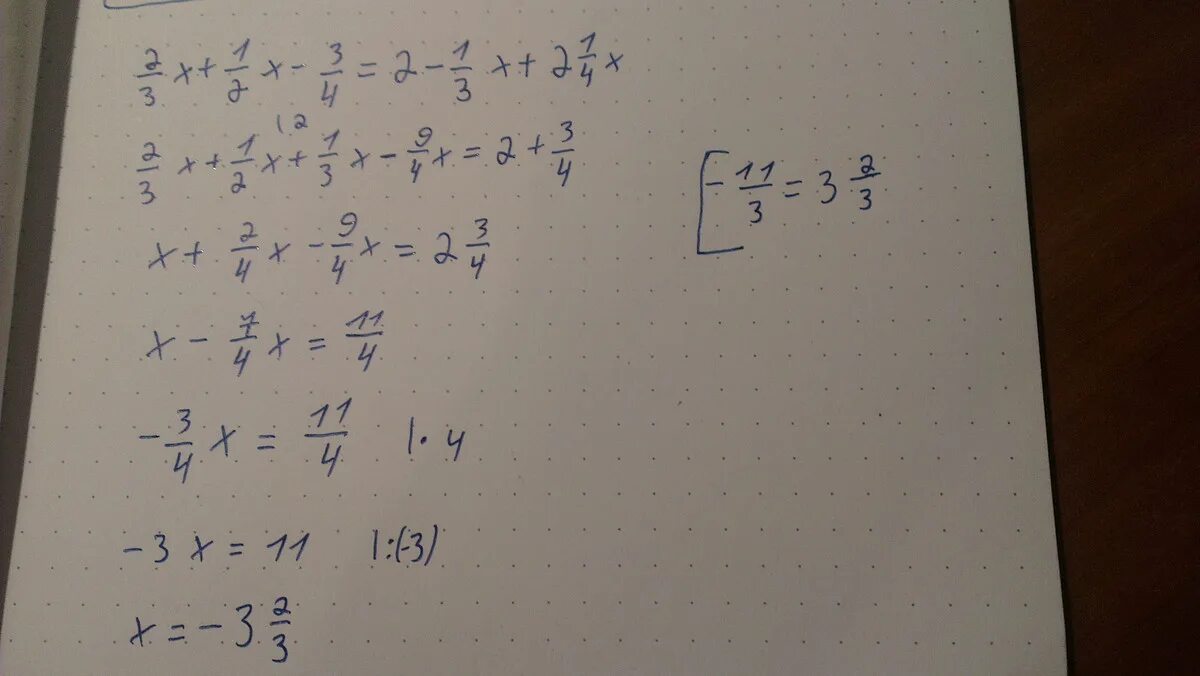 2/3 x + 1/2 x - 3/4 = 2 - 1/3 x + 2 1/4 x
12
2/3 x + 1/2 x + 1/3 x - 9/4 x = 2 + 3/4
- 11/3 = 3 2/3
x + 2/4 x - 9/4 x = 2 3/4
x - 7/4 x = 11/4
- 3/4 x = 11/4 |· 4
- 3 x = 11 |:(-3)
x = - 3 2/3